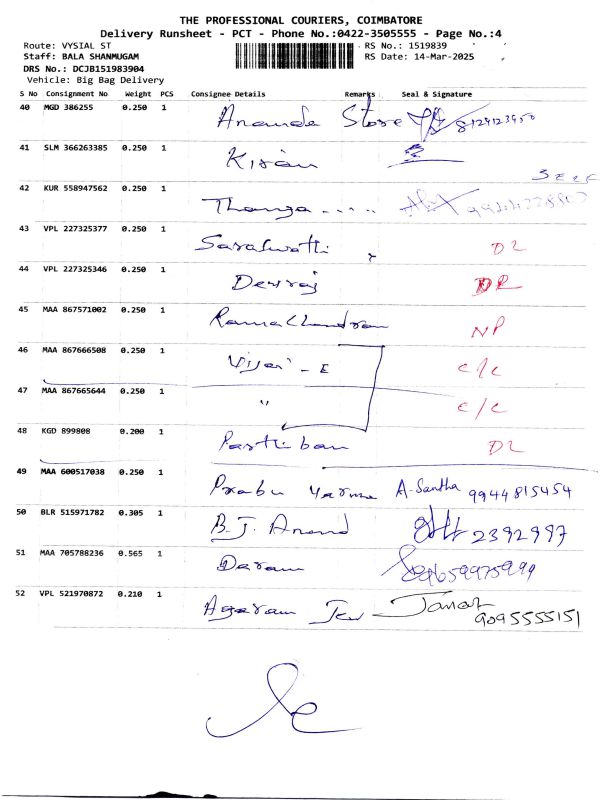 THE PROFESSIONAL COURIERS, COIMBATORE
Delivery Runsheet - PCT - Phone No.:0422-3505555 - Page No.:4
Route: VYSIAL ST RS No.: 1519839
Staff: BALA SHANMUGAM RS Date: 14-Mar-2025
DRS No.: DCJB151983904
Vehicle: Big Bag Delivery
S No Consignment No Weight PCS Consignee Details Remarks Seal & Signature
40 MGD 386255 0.250 1 Ananda Store 8124123450
41 SLM 366263385 0.250 1 Kiran
SELF
42 KUR 558947562 0.250 1 Thanga ....
43 VPL 227325377 0.250 1 Saralwathi D2
44 VPL 227325346 0.250 1 Devraj DR
45 MAA 867571002 0.250 1 Ramachandran NP
46 MAA 867666508 0.250 1 Vijai - E C/C
47 MAA 867665644 0.250 1 " C/C
48 KGD 899808 0.200 1 Parthiban D2
49 MAA 600517038 0.250 1 Prabu Varma A-Santha 9944815454
50 BLR 515971782 0.305 1 B.J. Anand 2392997
51 MAA 705788236 0.565 1 Daram
52 VPL 521970872 0.210 1 Agaram Jew 9095555151